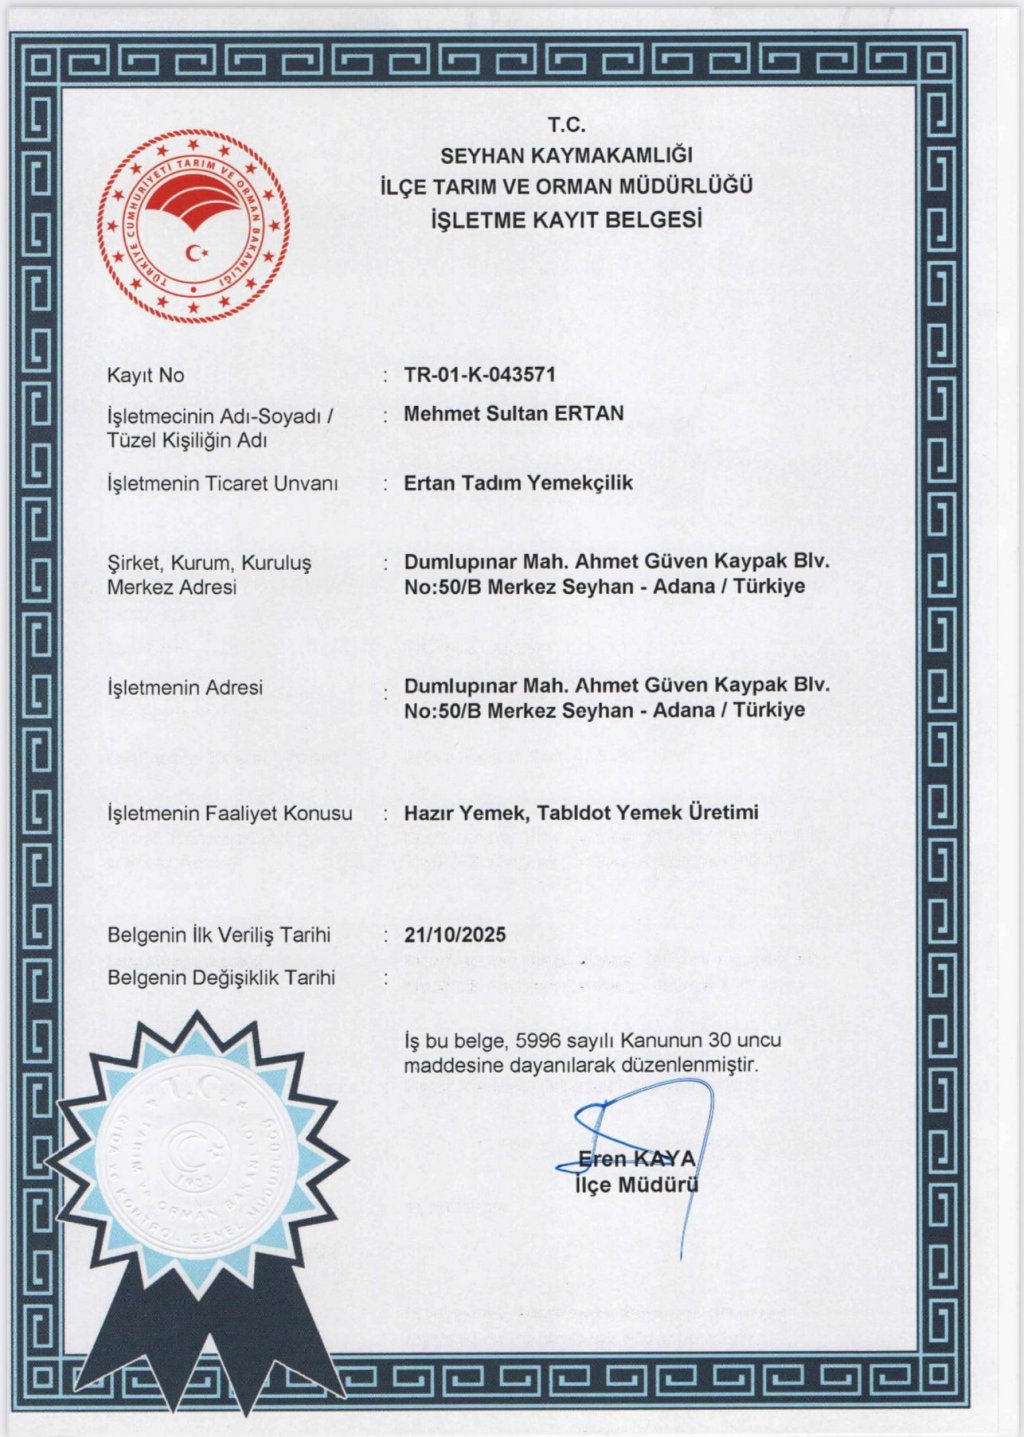 T.C.
SEYHAN KAYMAKAMLIĞI
İLÇE TARIM VE ORMAN MÜDÜRLÜĞÜ
İŞLETME KAYIT BELGESİ
TÜRKİYE CUMHURİYETİ TARIM VE ORMAN BAKANLIĞI
Kayıt No : TR-01-K-043571
İşletmecinin Adı-Soyadı / : Mehmet Sultan ERTAN
Tüzel Kişiliğin Adı
İşletmenin Ticaret Unvanı : Ertan Tadım Yemekçilik
Şirket, Kurum, Kuruluş : Dumlupınar Mah. Ahmet Güven Kaypak Blv.
Merkez Adresi No:50/B Merkez Seyhan - Adana / Türkiye
İşletmenin Adresi : Dumlupınar Mah. Ahmet Güven Kaypak Blv.
No:50/B Merkez Seyhan - Adana / Türkiye
İşletmenin Faaliyet Konusu : Hazır Yemek, Tabldot Yemek Üretimi
Belgenin İlk Veriliş Tarihi : 21/10/2025
Belgenin Değişiklik Tarihi :
İş bu belge, 5996 sayılı Kanunun 30 uncu
maddesine dayanılarak düzenlenmiştir.
Eren KAYA
İlçe Müdürü
T.C.
TARIM ve ORMAN BAKANLIĞI
GIDA ve KONTROL GENEL MÜDÜRLÜĞÜ
1923